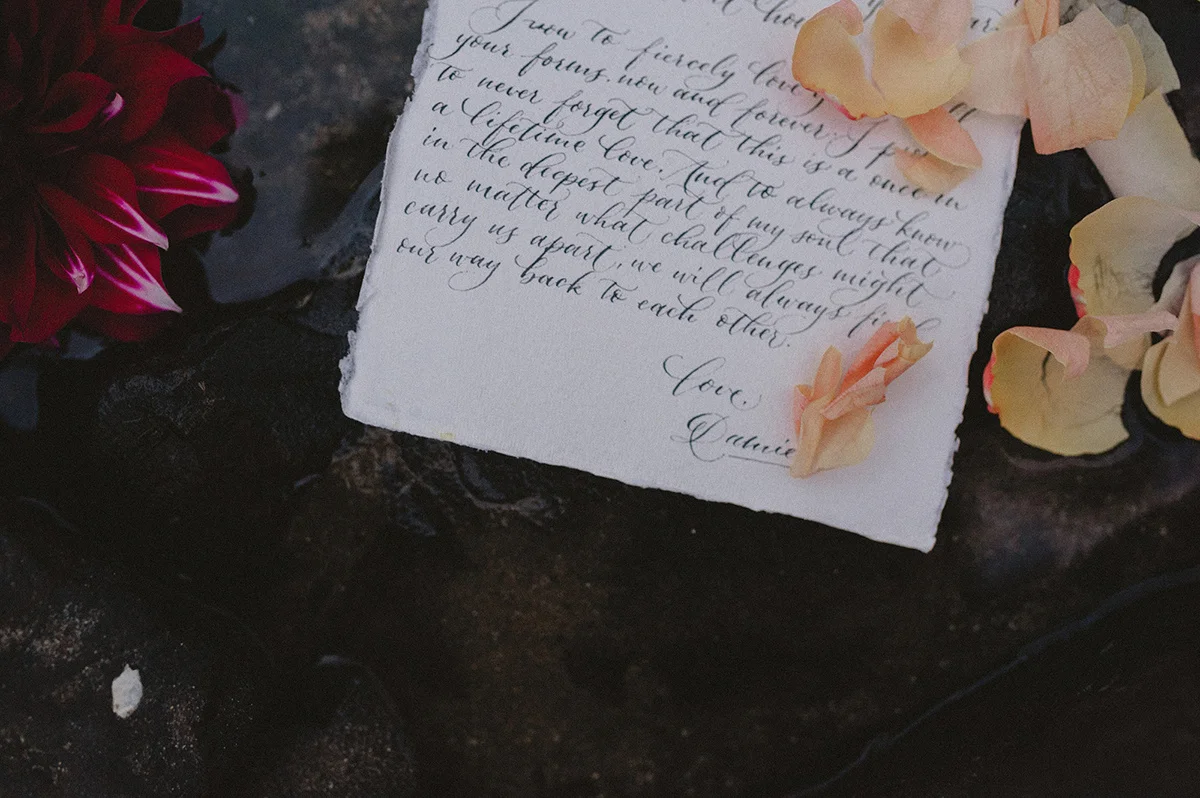 I vow to fiercely love
your forms, now and forever. I
to never forget that this is a once in
a lifetime love. And to always know
in the deepest part of my soul that
no matter what challenges might
carry us apart, we will always
our way back to each other.
Love,